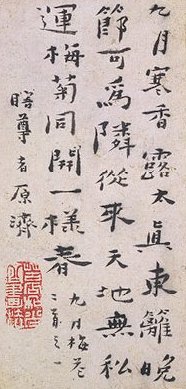 九月寒香露太真東籬晚
節可爲隣從來天地無私
運梅菊同開一樣春
九月梅
二首之一
瞎尊者原濟